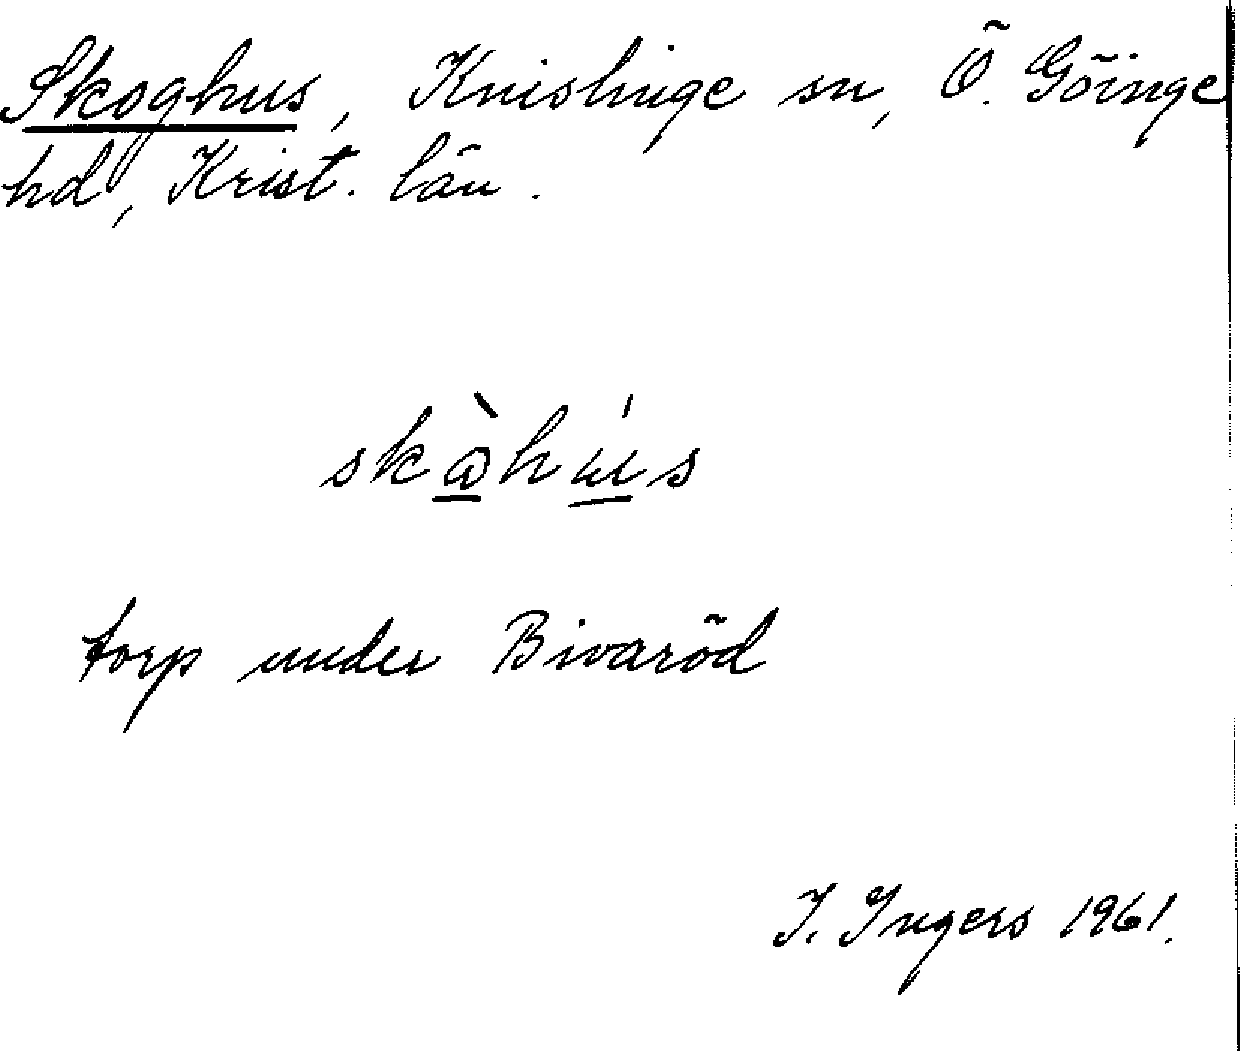 Skoghus, Knislinge sn, Ö. Göinge
hd, Krist. län.
skàhús
torp under Bivaröd
I. Ingers 1961.